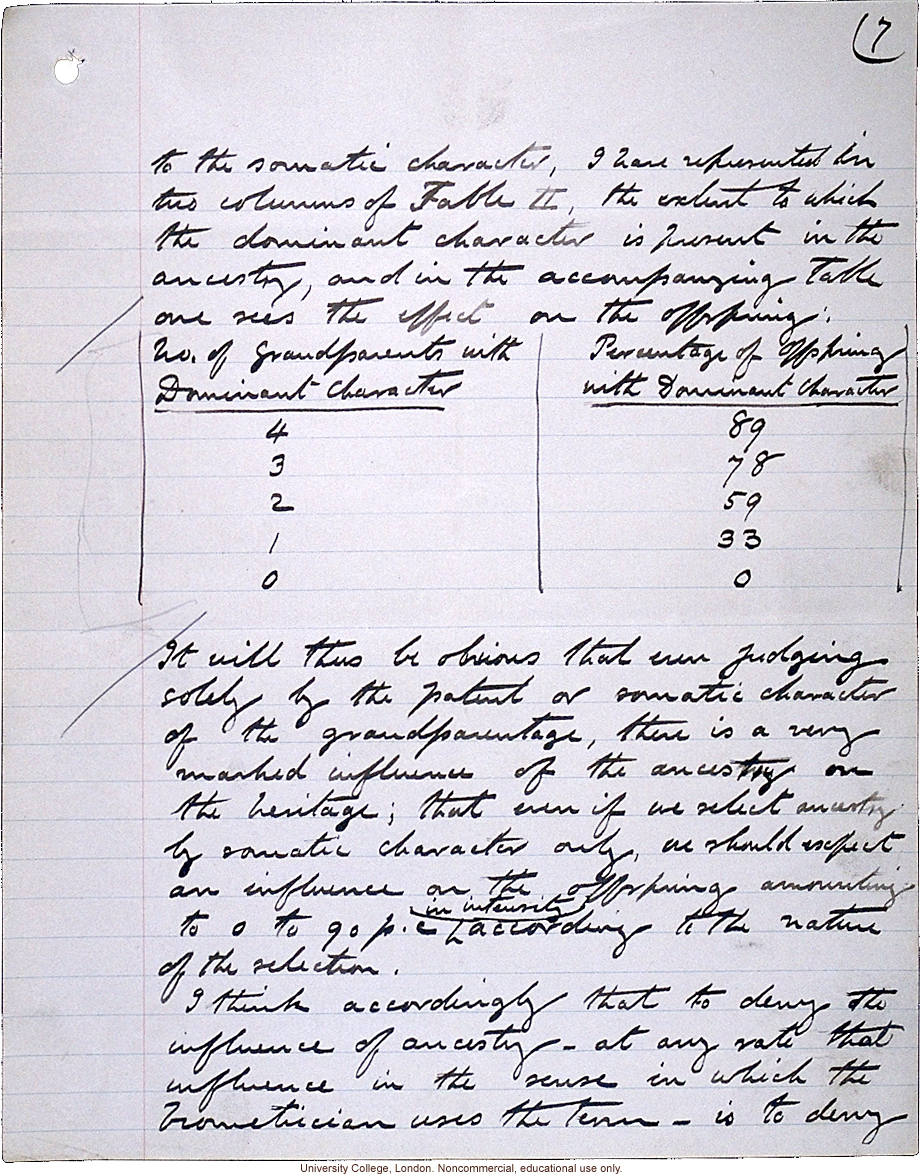 (7
to the somatic character, I have represented in
two columns of Table II, the extent to which
the dominant character is present in the
ancestry, and in the accompanying Table
one sees the effect on the offspring:
No. of Grandparents with Dominant Character
Percentage of Offspring with Dominant Character
4 89
3 78
2 59
1 33
0 0
It will thus be obvious that even judging
solely by the patent or somatic character
of the grandparentage, there is a very
marked influence of the ancestry on
the heritage; that even if we select ancestry
by somatic character only, we should expect
an influence on the offspring amounting
in intensity
to 0 to 90 p.c according to the nature
of the selection.
I think accordingly that to deny the
influence of ancestry - at any rate that
influence in the sense in which the
biometrician uses the term - is to deny
University College, London. Noncommercial, educational use only.